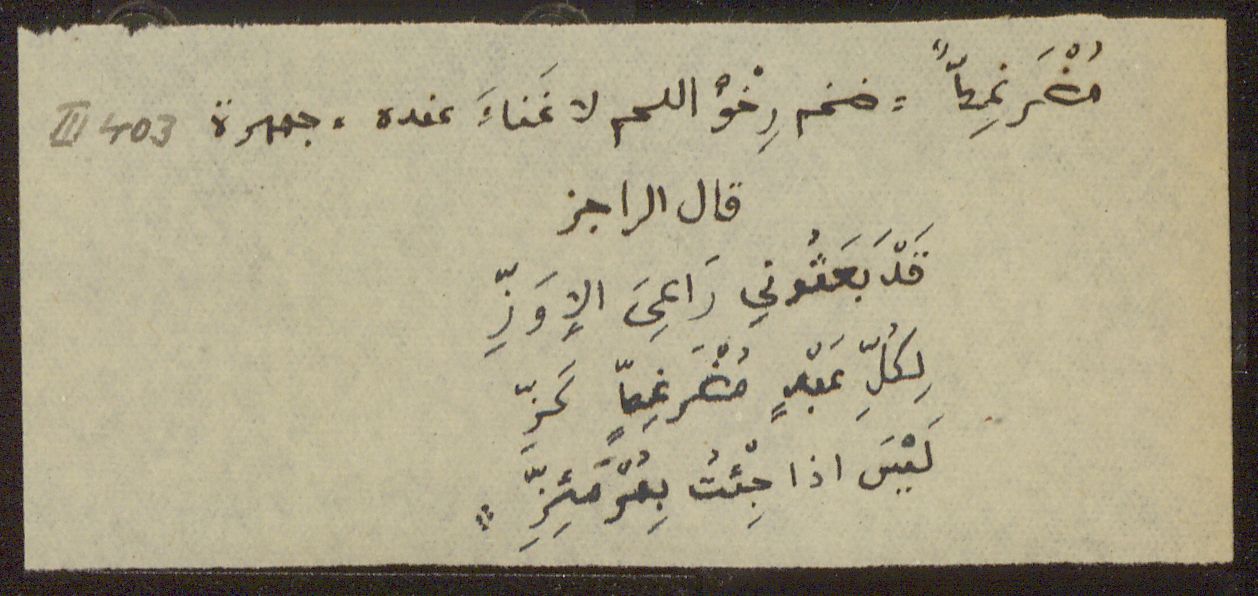 مُضْرَغِطٌّ = ضخم رِخْوُ اللحم لا غَناءَ عنده = جمهرة III 403
قال الراجز
قَدْ بَعَثُوني رَاعِىَ الإِوَزِّ
لِكُلِّ عَبْدٍ مُضْرَغِطٍّ كَزِّ
لَيْسَ اذا جِئْتُ بِمُرْمَئِزِّ "